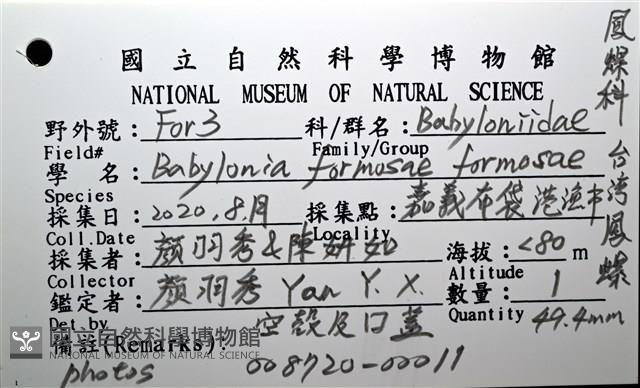 國立自然科學博物館
NATIONAL MUSEUM OF NATURAL SCIENCE
野外號：For3 科/群名：Babyloniidae
Field# Family/Group
學 名：Babylonia formosae formosae
Species
採集日：2020.8.月 採集點：嘉義布袋港漁市
Coll.Date Locality
採集者：顏羽秀&陳妍如 海拔：<80 m
Collector Altitude
鑑定者：顏羽秀 Yan Y. X. 數量：1
Det.by Quantity 49.4mm
備註(Remarks)： 空殼及口蓋
photos 008720-00011
鳳螺科 台湾鳳螺
國立自然科學博物館
NATIONAL MUSEUM OF NATURAL SCIENCE